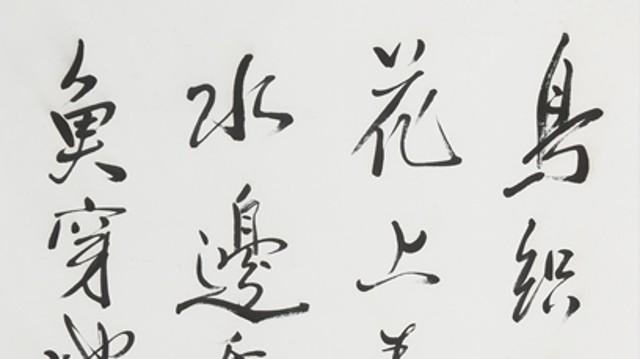 鳥织
花上
水邊
魚穿